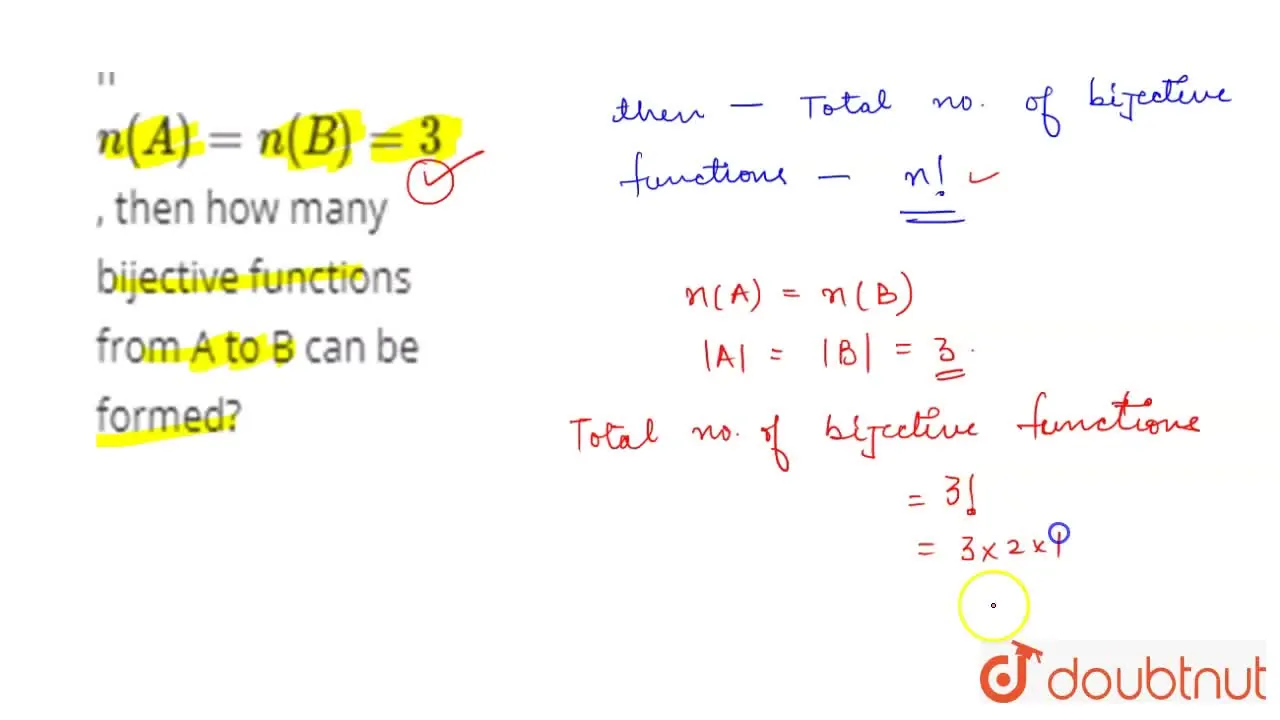 n(A) = n(B) = 3
, then how many
bijective functions
from A to B can be
formed?
then — Total no. of bijective
functions — n!
n(A) = n(B)
|A| = |B| = 3.
Total no. of bijective functions
= 3!
= 3 × 2 × 1
doubtnut